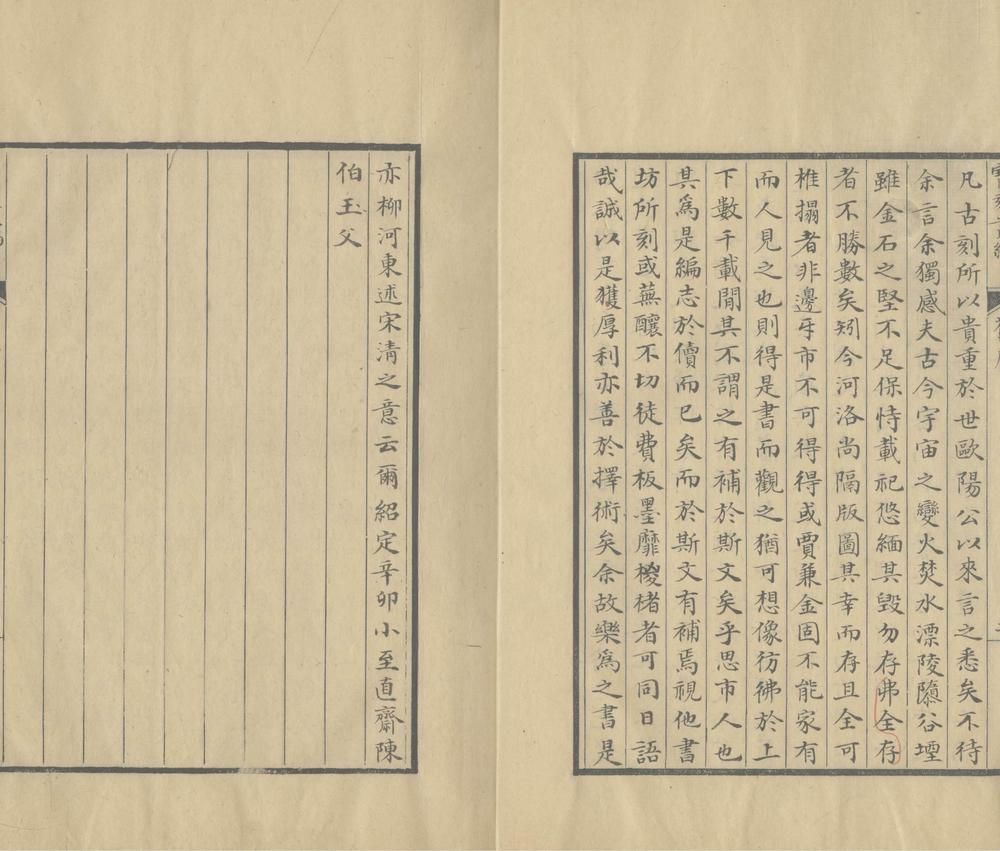 凡古刻所以貴重於世歐陽公以來言之悉矣不待
余言余獨感夫古今宇宙之變火焚水漂陵隳谷堙
雖金石之堅不足保恃載祀悠緬其毀勿存弗全存
者不勝數矣矧今河洛尚隔版圖其幸而存且全可
椎搨者非邊牙市不可得得或賈兼金固不能家有
而人見之也則得是書而觀之猶可想像彷彿於上
下數千載閒其不謂之有補於斯文矣乎思市人也
其為是編志於儥而已矣而於斯文有補焉視他書
坊所刻或蕪釀不切徒費板墨靡椶楮者可同日語
哉誠以是獲厚利亦善於擇術矣余故樂為之書是
亦柳河東述宋清之意云爾紹定辛卯小至直齋陳
伯玉父